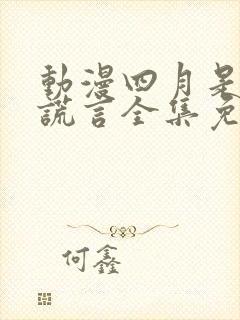 動漫四月是
謊言全集免
何鑫